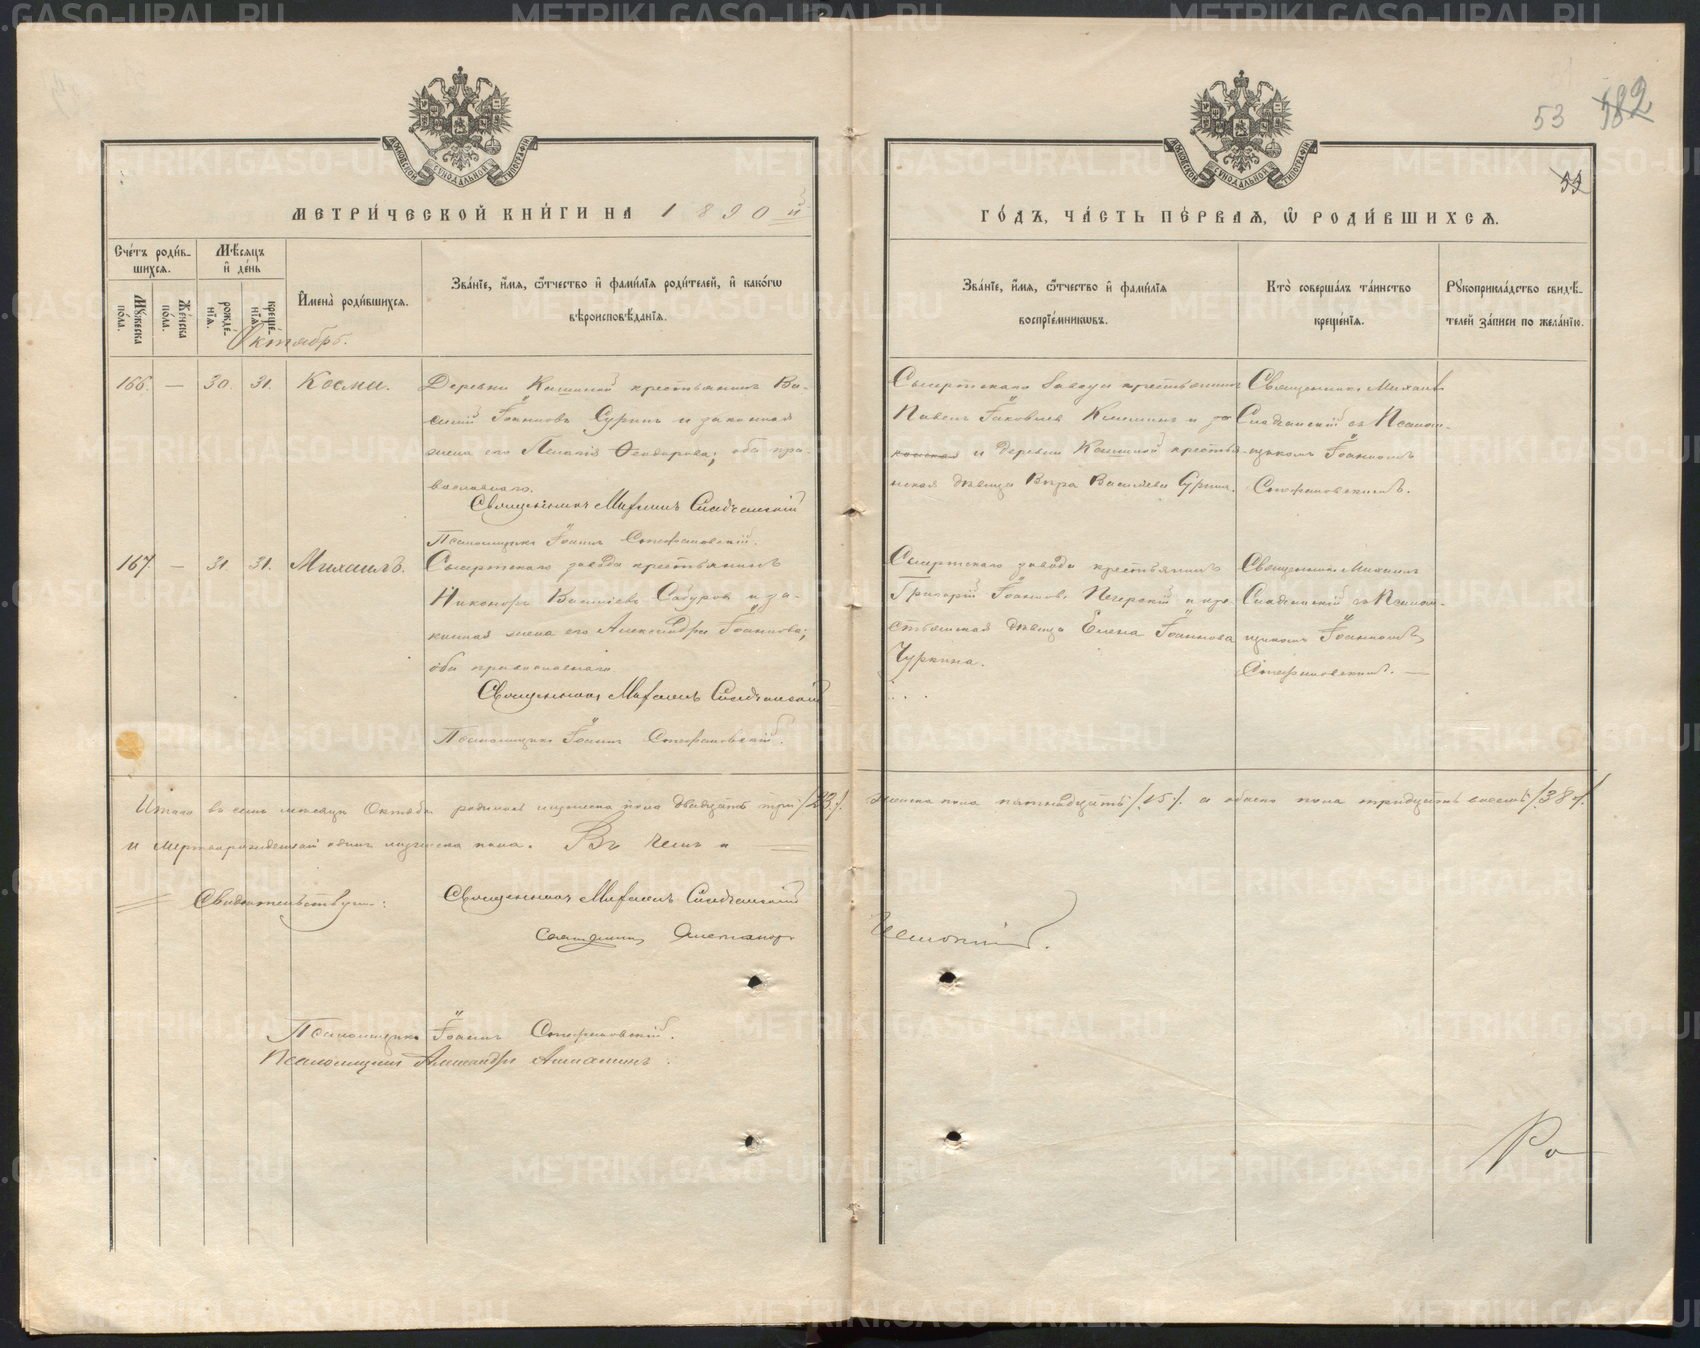 53 182
53
МЕТРИ́ЧЕСКОЙ КНИ́ГИ НА 1890й
ГО́ДЪ, ЧА́СТЬ ПЕ́РВАЯ, Ѡ҆ РОДИ́ВШИХСЯ.
Сче́тъ роди́вшихся.
Мꙋжеска по́ла.
Же́нска по́ла.
Мѣ́сяцъ и҆ де́нь
рожде́нїя.
креще́нїя.
И҆мена̀ роди́вшихся.
Зва́нїе, и҆́мя, ѻ҆́тчество и҆ фамѝлїя роди́телей, и҆ како́гѡ
вѣроисповѣ́данїя.
Зва́нїе, и҆́мя, ѻ҆́тчество и҆ фамѝлїя
воспрїе́мникѡвъ.
Кто̀ соверша́лъ та́инство
креще́нїя.
Рꙋкоприкла́дство свидѣ́-
телей за́писи по жела́нїю.
Октябрь.
166. — 30. 31. Косма.
Деревни Кашиной крестьянинъ Ва-
силій Іоанновъ Суринъ и законная
жена его Пелагія Ѳеодорова; оба пра-
вославнаго.
Священникъ Михаилъ
Псаломщикъ Іоаннъ Стефановскій.
Сысертскаго завода крестьянинъ
Павелъ Іаковлевъ и
и деревни Кашиной крестья-
нская дѣвица Вѣра Васильева Сурина.
Священникъ Михаилъ
съ Псалом-
щикомъ Іоанномъ
Стефановскимъ.
167 — 31. 31. Михаилъ.
Сысертскаго завода крестьянинъ
Никоноръ Васильевъ Сабуровъ и за-
конная жена его Александра Іоаннова;
оба православнаго
Священникъ Михаилъ
Псаломщикъ Іоаннъ Стефановскій.
Сысертскаго завода крестьянинъ
Григорій Іоанновъ Печерскій и кре-
стьянская дѣвица Елена Іоаннова
Чуркина.
Священникъ Михаилъ
съ Псалом-
щикомъ Іоанномъ
Стефановскимъ. —
Итого въ семъ мѣсяцѣ Октябрѣ родилось мужеска пола двадцать три /23/. женска пола пятнадцать /15/. а обоего пола тридцать восемь /38/.
и мертворожденный одинъ мужеска пола. Въ чемъ и
Свидѣтельствуемъ: Священникъ Михаилъ
Священникъ Александръ
Псаломщикъ Іоаннъ Стефановскій.
Псаломщикъ Александръ
METRIKI.GASO-URAL.RU